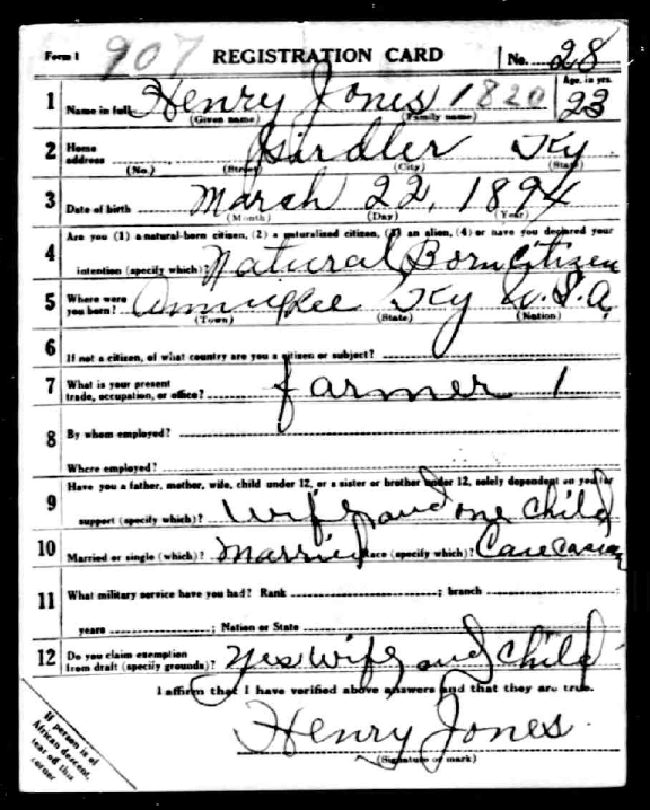 Form 1 907 REGISTRATION CARD No. 28
1 Name in full Henry Jones 1820 Age, in yrs. 23
(Given name) (Family name)
2 Home address Girdler Ky
(No.) (Street) (City) (State)
3 Date of birth March 22, 1894
(Month) (Day) (Year)
4 Are you (1) a natural-born citizen, (2) a naturalized citizen, (3) an alien, (4) or have you declared your
intention (specify which)? Natural Born Citizen
5 Where were you born? Ky U.S.A.
(Town) (State) (Nation)
6 If not a citizen, of what country are you a citizen or subject?
7 What is your present trade, occupation, or office? farmer 1
8 By whom employed?
Where employed?
9 Have you a father, mother, wife, child under 12, or a sister or brother under 12, solely dependent on you for
support (specify which)? Wife and one child
10 Married or single (which)? Married Race (specify which)?
11 What military service have you had? Rank ; branch
years ; Nation or State
12 Do you claim exemption from draft (specify grounds)? Yes Wife and Child
I affirm that I have verified above answers and that they are true.
Henry Jones
(Signature or mark)
If person is of
African descent,
tear off this
corner